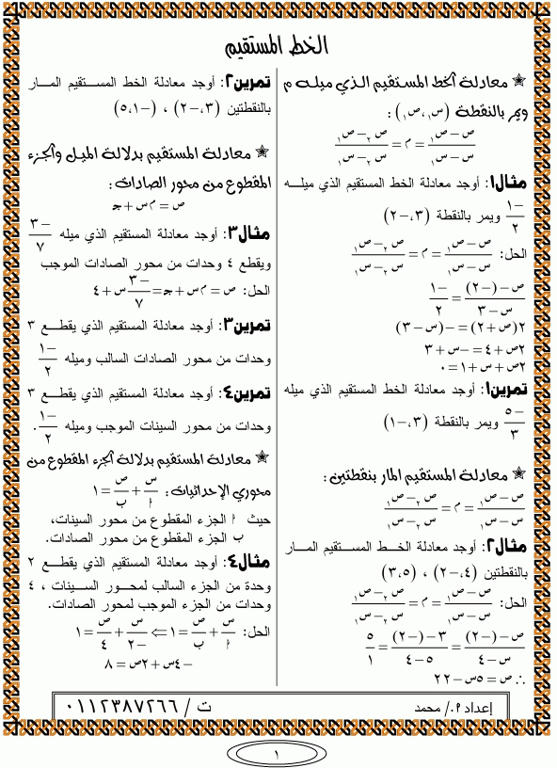 الخط المستقيم
✯ معادلة الخط المستقيم الذي ميله م
ويمر بالنقطة (س١، ص١) :
(ص – ص١)/(س – س١) = م = (ص٢ – ص١)/(س٢ – س١)
مثال١: أوجد معادلة الخط المستقيم الذي ميله
–١/٢ ويمر بالنقطة (٣، –٢)
الحل: (ص – ص١)/(س – س١) = م = (ص٢ – ص١)/(س٢ – س١)
(ص – (–٢))/(س – ٣) = –١/٢
٢(ص + ٢) = –(س – ٣)
٢ص + ٤ = –س + ٣
٢ص + س + ١ = ٠
تمرين١: أوجد معادلة الخط المستقيم الذي ميله
–٥/٣ ويمر بالنقطة (٣، –١)
✯ معادلة المستقيم المار بنقطتين:
(ص – ص١)/(س – س١) = م = (ص٢ – ص١)/(س٢ – س١)
مثال٢: أوجد معادلة الخط المستقيم المار
بالنقطتين (٤، –٢) ، (٣،٥)
الحل: (ص – ص١)/(س – س١) = م = (ص٢ – ص١)/(س٢ – س١)
(ص – (–٢))/(س – ٤) = (–٣ – (–٢))/(٥ – ٤) = ٥/١
∴ ص = ٥س – ٢٢
تمرين٢: أوجد معادلة الخط المستقيم المار
بالنقطتين (٣، –٢) ، (–٥،١)
✯ معادلة المستقيم بدلالة الميل والجزء
المقطوع من محور الصادات:
ص = م س + جـ
مثال٣: أوجد معادلة المستقيم الذي ميله –٣/٧
ويقطع ٤ وحدات من محور الصادات الموجب
الحل: ص = م س + جـ = –٣/٧ س + ٤
تمرين٣: أوجد معادلة المستقيم الذي يقطع ٣
وحدات من محور الصادات السالب وميله –١/٢
تمرين٤: أوجد معادلة المستقيم الذي يقطع ٣
وحدات من محور السينات الموجب وميله –١/٢.
✯ معادلة المستقيم بدلالة الجزء المقطوع من
محوري الإحداثيات: س/أ + ص/ب = ١
حيث أ الجزء المقطوع من محور السينات،
ب الجزء المقطوع من محور الصادات.
مثال٤: أوجد معادلة المستقيم الذي يقطع ٢
وحدة من الجزء السالب لمحور السينات ، ٤
وحدات من الجزء الموجب لمحور الصادات.
الحل: س/أ + ص/ب = ١ ⇐ س/–٢ + ص/٤ = ١
–٤س + ٢ص = ٨
إعداد أ./ محمد
ت / ٠١١٢٣٨٧٢٦٦
١